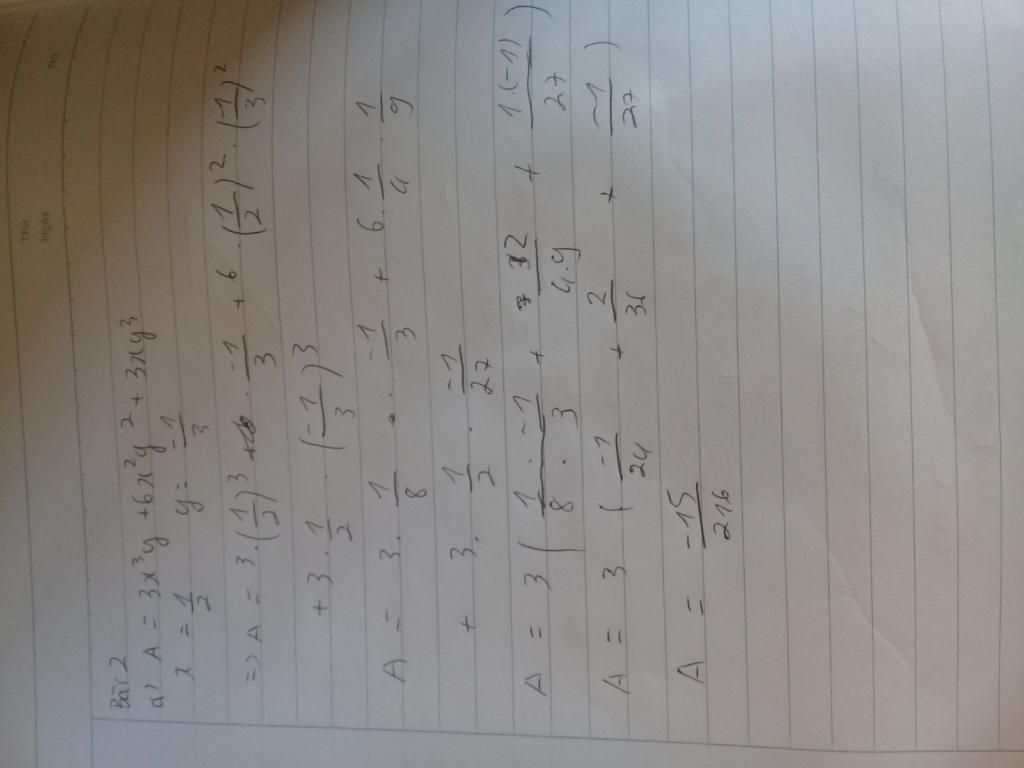 Thứ
Ngày
No.
Bài 2
a) A = 3x³y + 6x²y² + 3xy³
x = 1/2 y = -1/3
=> A = 3 . (1/2)³ . -1/3 + 6 . (1/2)² . (-1/3)²
+ 3 . 1/2 . (-1/3)³
A = 3 . 1/8 . -1/3 + 6 . 1/4 . 1/9
+ 3 . 1/2 . -1/27
A = 3 ( 1 . -1 / 8 . 3 + 2 / 4.9 + 1(-1) / 27 )
A = 3 ( -1/24 + 2/36 + -1/27 )
A = -15/216